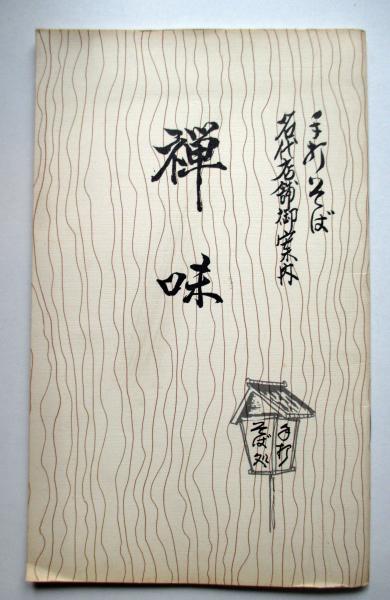 手打そば
名代店舗御案内
禅味
手打
そば処